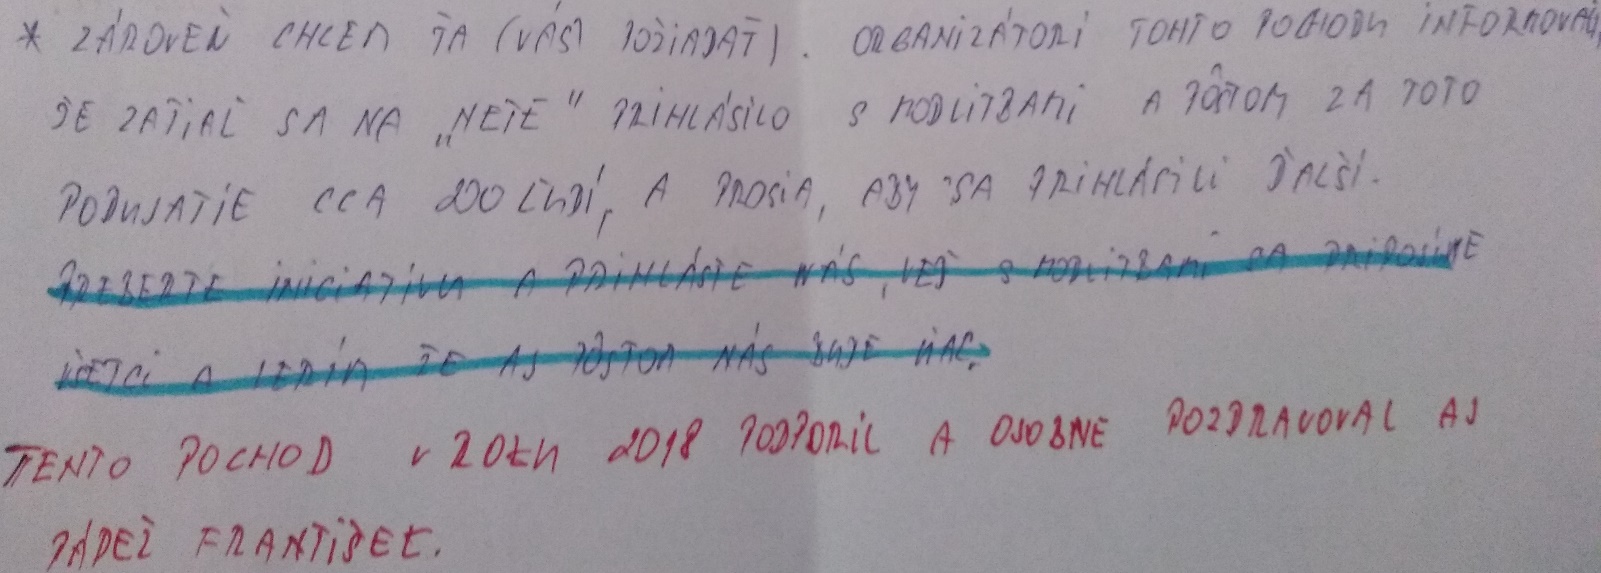 * ZÁROVEŇ CHCEM ŤA (VÁS) POŽIADAŤ). ORGANIZÁTORI TOHTO POCHODU INFORMOVALI,
ŽE ZATIAĽ SA NA „NETE" PRIHLÁSILO S MODLITBAMI A PÔSTOM ZA TOTO
PODUJATIE CCA 200 ĽUDÍ, A PROSIA, ABY SA PRIHLÁSILI ĎALŠÍ.
PREBERTE INICIATÍVU A PRIHLÁSTE NÁS, VEĎ S MODLITBAMI SA PRIPOJÍME
VŠETCI A VERÍM ŽE AJ PÔSTOM NÁS BUDE VIAC.
TENTO POCHOD V ROKU 2018 PODPORIL A OSOBNE POZDRAVOVAL AJ
PÁPEŽ FRANTIŠEK.